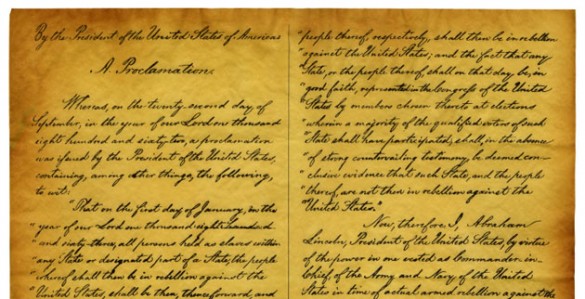 By the President of the United States of America:
A Proclamation.
Whereas, on the twenty-second day of
September, in the year of our Lord one thousand
eight hundred and sixty-two, a proclamation
was issued by the President of the United States,
containing, among other things, the following,
to wit:
"That on the first day of January, in the
"year of our Lord one thousand eight hundred
"and sixty-three, all persons held as slaves within
"any State or designated part of a State, the people
"whereof shall then be in rebellion against the
"United States, shall be then, thenceforward, and
"people thereof, respectively, shall then be in rebellion
"against the United States; and the fact that any
"State, or the people thereof, shall on that day be, in
"good faith, represented in the Congress of the United
"States by members chosen thereto at elections
"wherein a majority of the qualified voters of such
"State shall have participated, shall, in the absence
"of strong countervailing testimony, be deemed con-
"clusive evidence that such State, and the people
"thereof, are not then in rebellion against the
"United States."
Now, therefore I, Abraham
Lincoln, President of the United States, by virtue
of the power in me vested as Commander-in-
Chief of the Army and Navy of the United
States in time of actual armed rebellion against the